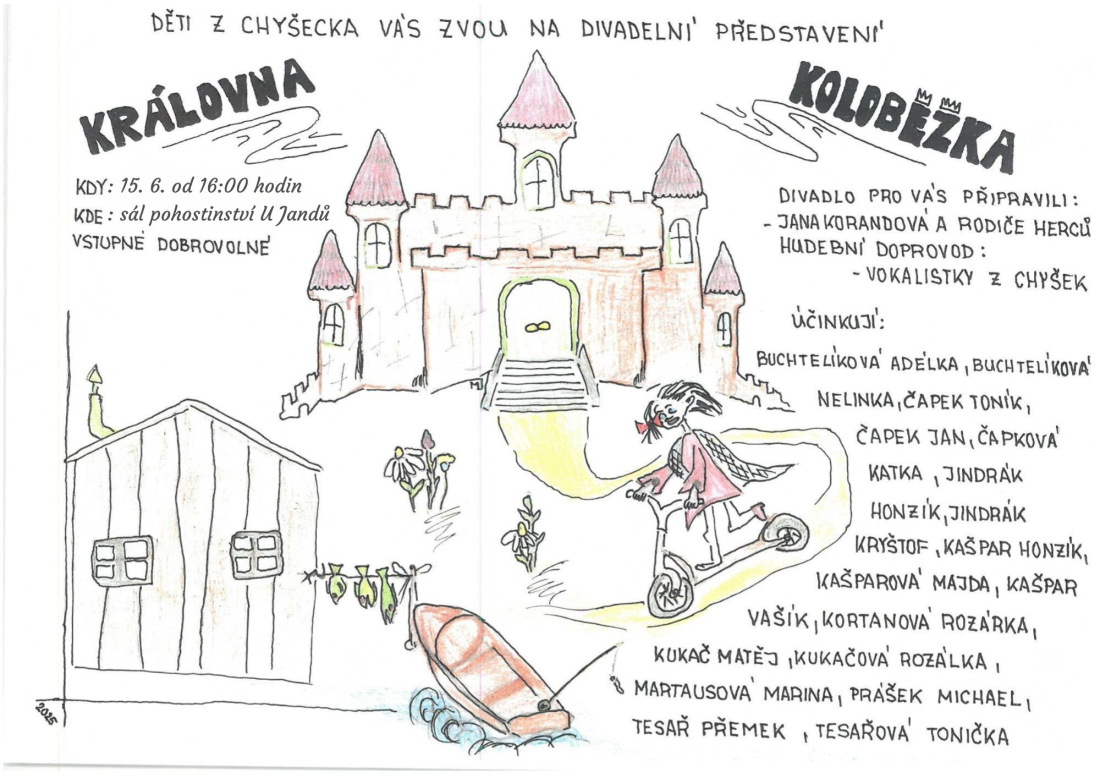 DĚTI Z CHYŠECKA VÁS ZVOU NA DIVADELNÍ PŘEDSTAVENÍ
KRÁLOVNA
KOLOBĚŽKA
KDY: 15. 6. od 16:00 hodin
KDE: sál pohostinství U Jandů
VSTUPNÉ DOBROVOLNÉ
DIVADLO PRO VÁS PŘIPRAVILI:
- JANA KORANDOVÁ A RODIČE HERCŮ
HUDEBNÍ DOPROVOD:
- VOKALISTKY Z CHYŠEK
ÚČINKUJÍ:
BUCHTELÍKOVÁ ADÉLKA, BUCHTELÍKOVÁ
NELINKA, ČAPEK TONÍK,
ČAPEK JAN, ČAPKOVÁ
KATKA, JINDRÁK
HONZÍK, JINDRÁK
KRYŠTOF, KAŠPAR HONZÍK,
KAŠPAROVÁ MAJDA, KAŠPAR
VAŠÍK, KORTANOVÁ ROZÁRKA,
KUKAČ MATĚJ, KUKAČOVÁ ROZÁLKA,
MARTAUSOVÁ MARINA, PRÁŠEK MICHAEL,
TESAŘ PŘEMEK, TESAŘOVÁ TONIČKA
2025